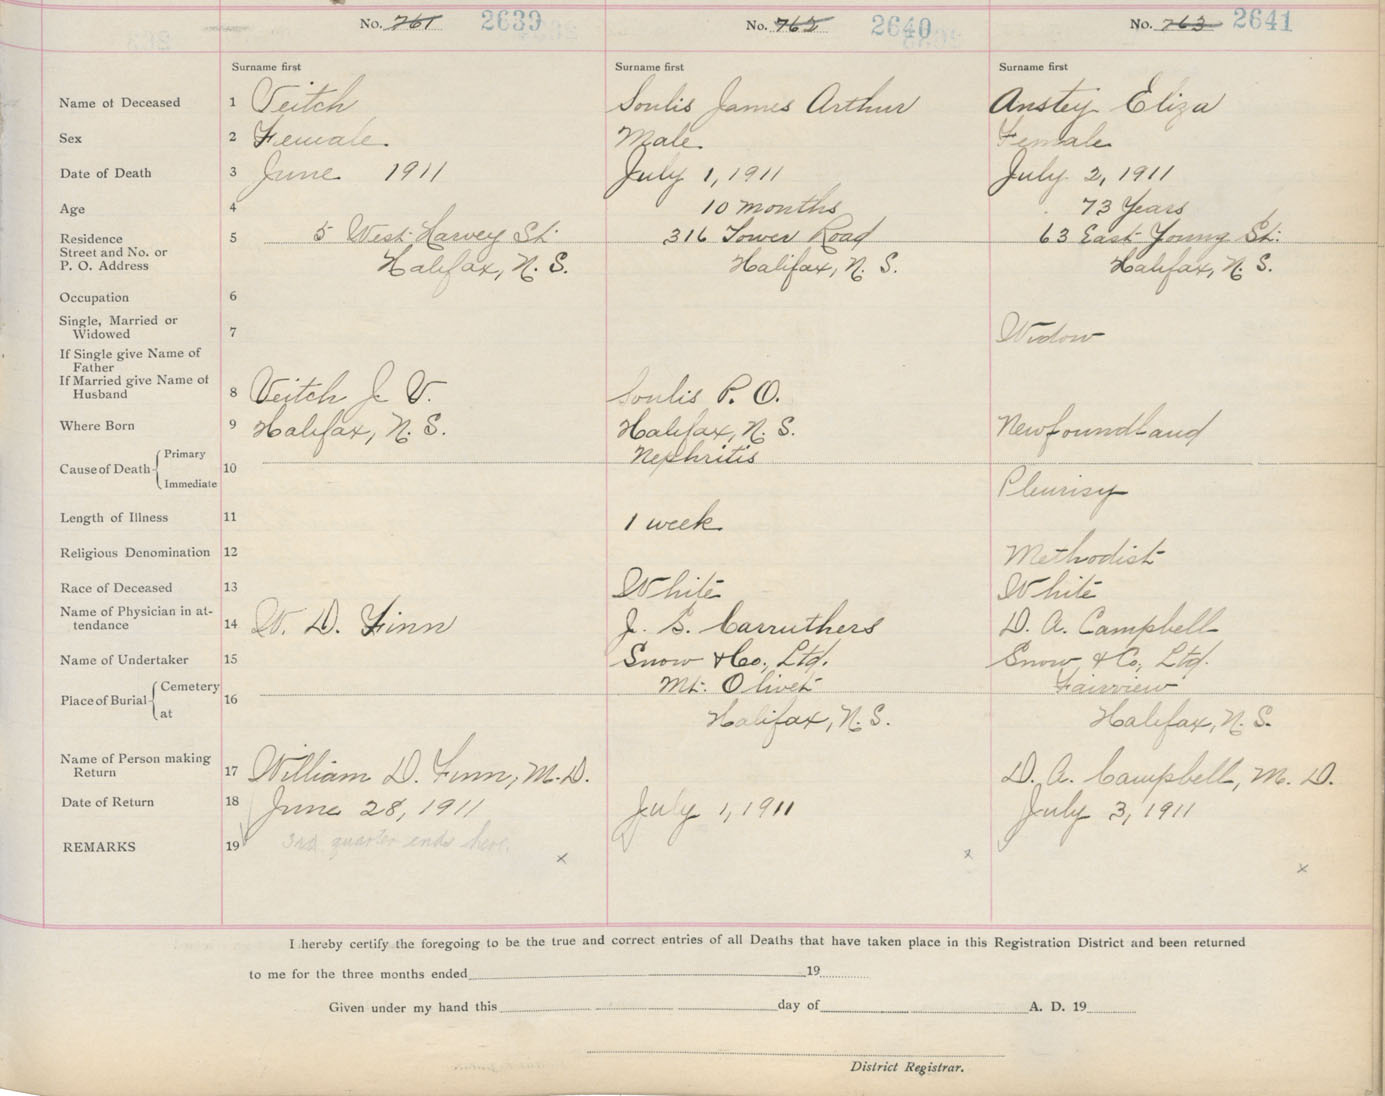 No. 761 2639 No. 762 2640 No. 763 2641
Surname first Surname first Surname first
Name of Deceased 1 Veitch Soulis James Arthur Anstey Eliza
Sex 2 Female Male Female
Date of Death 3 June 1911 July 1, 1911 July 2, 1911
Age 4 10 months 73 Years
Residence 5 5 West Harvey St. 316 Tower Road 63 East Young St.
Street and No. or
P. O. Address Halifax, N. S. Halifax, N. S. Halifax, N. S.
Occupation 6
Single, Married or
Widowed 7 Widow
If Single give Name of
Father
If Married give Name of
Husband 8 Veitch J. V. Soulis P. O.
Where Born 9 Halifax, N. S. Halifax, N. S. Newfoundland
Cause of Death Primary 10 Nephritis
Immediate Pleurisy
Length of Illness 11 1 week
Religious Denomination 12 Methodist
Race of Deceased 13 White White
Name of Physician in at-
tendance 14 W. D. Finn J. G. Carruthers D. A. Campbell
Name of Undertaker 15 Snow & Co., Ltd. Snow & Co., Ltd.
Place of Burial Cemetery 16 Mt. Olivet Fairview
at Halifax, N. S. Halifax, N. S.
Name of Person making
Return 17 William D. Finn, M. D. D. A. Campbell, M. D.
Date of Return 18 June 28, 1911 July 1, 1911 July 3, 1911
REMARKS 19 3rd quarter ends here. x x x
I hereby certify the foregoing to be the true and correct entries of all Deaths that have taken place in this Registration District and been returned
to me for the three months ended 19
Given under my hand this day of A. D. 19
District Registrar.